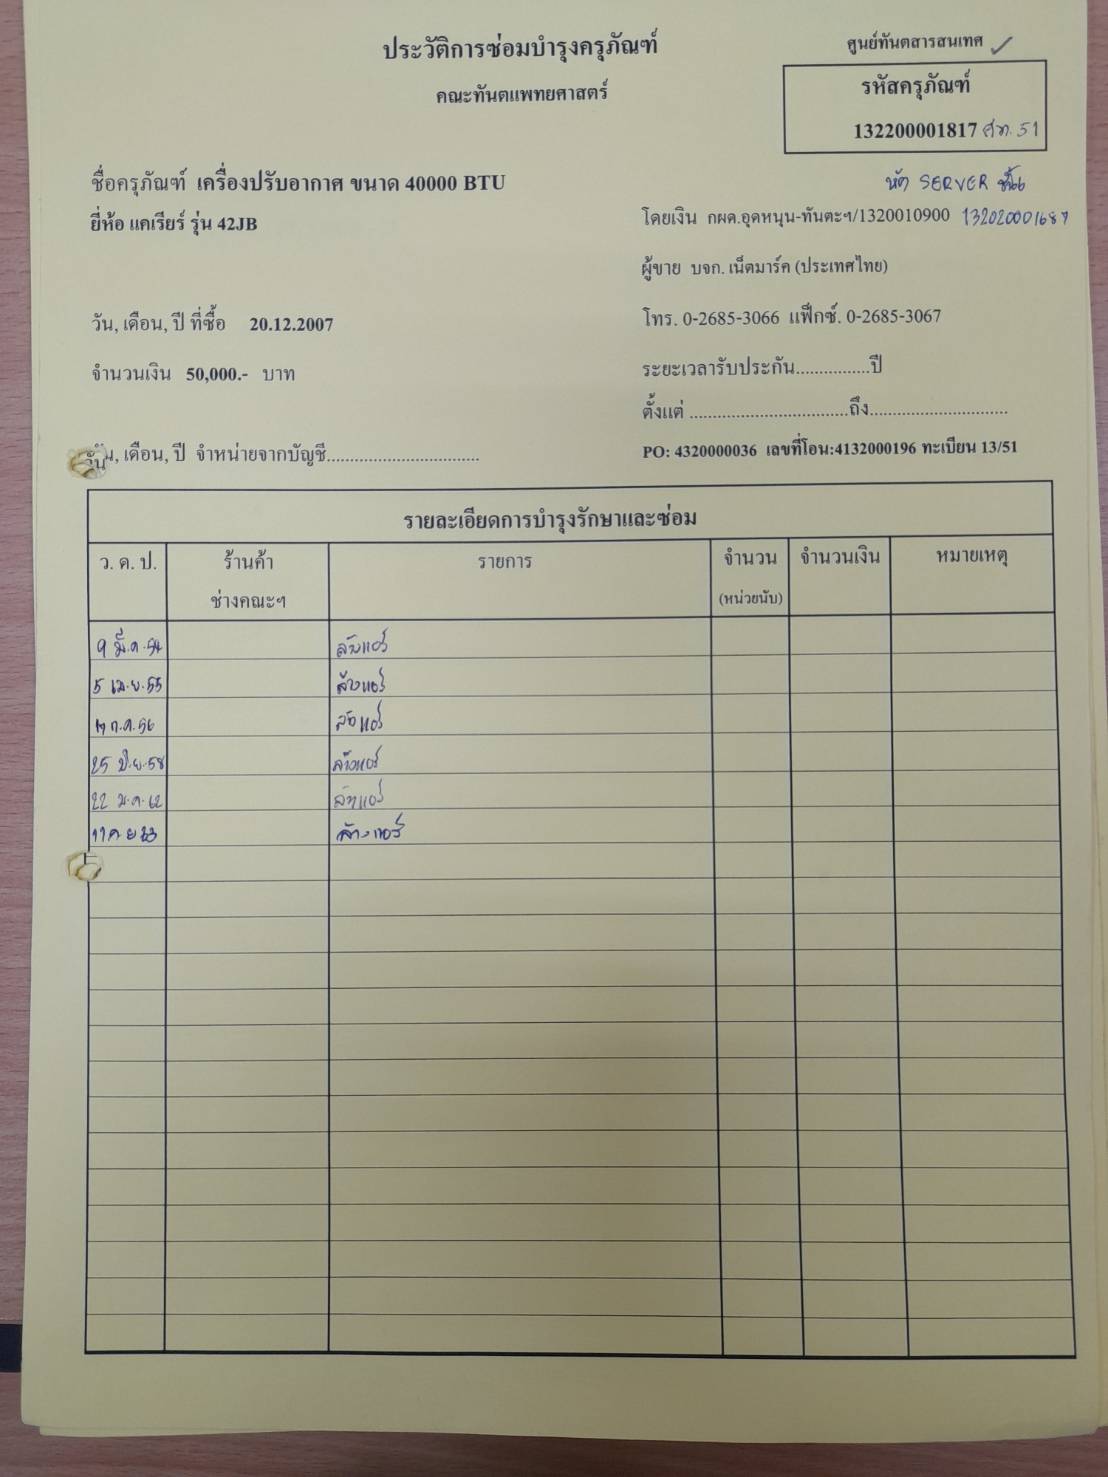 ประวัติการซ่อมบำรุงครุภัณฑ์
คณะทันตแพทยศาสตร์
ศูนย์ทันตสารสนเทศ ✓
รหัสครุภัณฑ์
132200001817 ศท. 51
ชื่อครุภัณฑ์ เครื่องปรับอากาศ ขนาด 40000 BTU
SERVER
ยี่ห้อ แคเรียร์ รุ่น 42JB
โดยเงิน กผด.อุดหนุน-ทันตะฯ/1320010900 132020001687
ผู้ขาย บจก. เน็ตมาร์ค (ประเทศไทย)
วัน, เดือน, ปี ที่ซื้อ 20.12.2007
โทร. 0-2685-3066 แฟ็กซ์. 0-2685-3067
จำนวนเงิน 50,000.- บาท
ระยะเวลารับประกัน................ปี
ตั้งแต่ ..................................ถึง..............................
วัน, เดือน, ปี จำหน่ายจากบัญชี.................................
PO: 4320000036 เลขที่โอน:4132000196 ทะเบียน 13/51
รายละเอียดการบำรุงรักษาและซ่อม
ว. ด. ป. ร้านค้า รายการ จำนวน จำนวนเงิน หมายเหตุ
ช่างคณะฯ (หน่วยนับ)
9 มี.ค. 54 ล้างแอร์
5 เม.ย. 55 ล้างแอร์
ก.ค. 56 ล้างแอร์
25 มิ.ย. 58 ล้างแอร์
22 ม.ค. 62 ล้างแอร์
ล้างแอร์